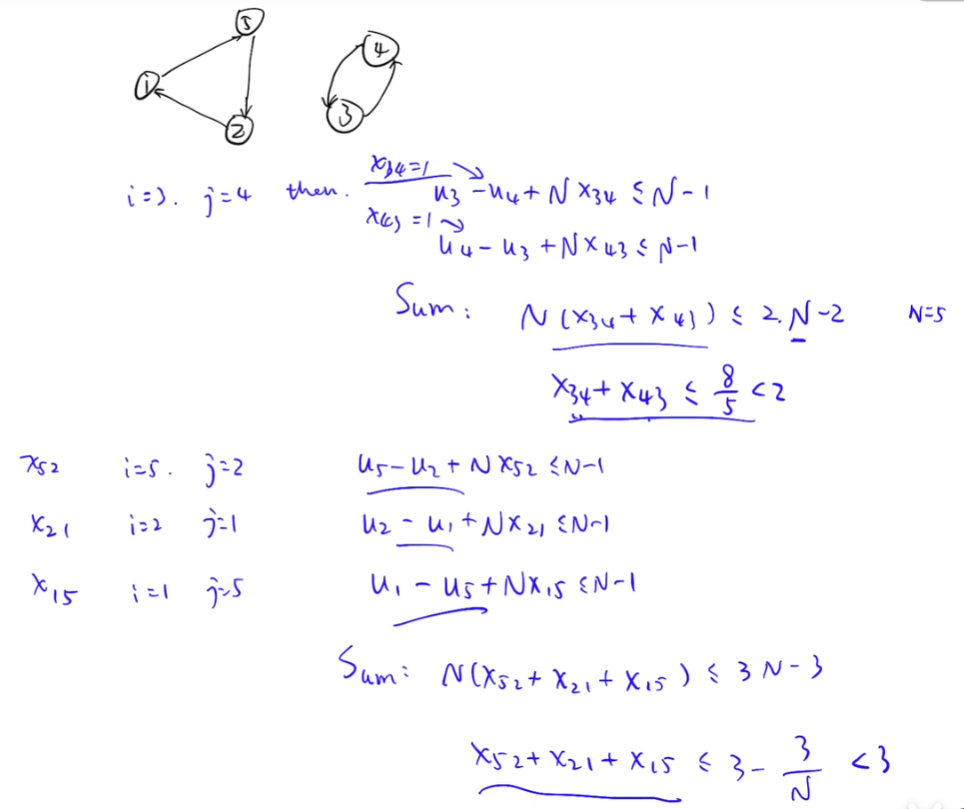 5
4
1
3
2
x34=1
i=3. j=4 then. u3-u4+Nx34≤N-1
x43=1
u4-u3+Nx43≤N-1
Sum: N(x34+x43)≤2.N-2 N=5
x34+x43≤8/5<2
x52 i=5. j=2 u5-u2+Nx52≤N-1
x21 i=2 j=1 u2-u1+Nx21≤N-1
x15 i=1 j=5 u1-u5+Nx15≤N-1
Sum: N(x52+x21+x15)≤3N-3
x52+x21+x15≤3-3/N<3